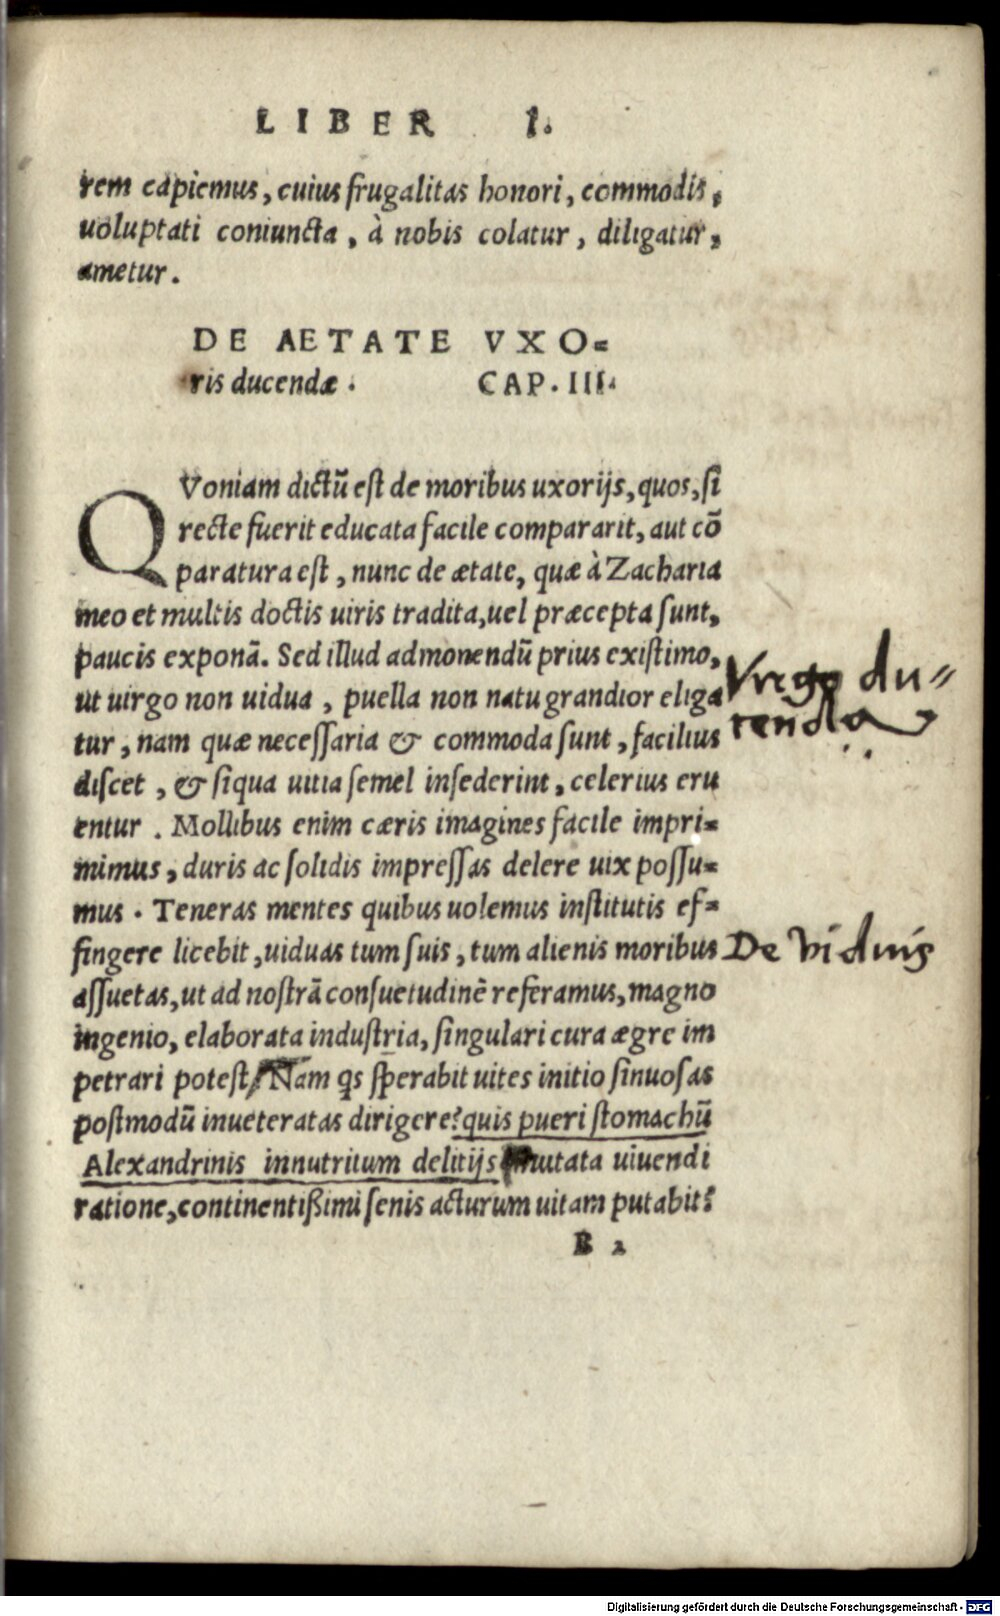 LIBER I.
rem capiemus, cuius frugalitas honori, commodis,
uoluptati coniuncta, à nobis colatur, diligatur,
ametur.
DE AETATE VXO=
ris ducendæ. CAP. III.
QVoniam dictũ est de moribus uxorijs, quos, si
recte fuerit educata facile compararit, aut cō
paratura est, nunc de ætate, quæ à Zacharia
meo et multis doctis uiris tradita, uel præcepta sunt,
paucis exponã. Sed illud admonendũ prius existimo,
ut uirgo non uidua, puella non natu grandior eliga
tur, nam quæ necessaria & commoda sunt, facilius
discet, & siqua uitia semel insederint, celerius eru
entur. Mollibus enim cæris imagines facile impri=
mimus, duris ac solidis impressas delere uix possu=
mus. Teneras mentes quibus uolemus institutis ef=
fingere licebit, uiduas tum suis, tum alienis moribus
assuetas, ut ad nostrã consuetudinẽ referamus, magno
ingenio, elaborata industria, singulari cura ægre im
petrari potest. Nam qs sperabit uites initio sinuosas
postmodũ inueteratas dirigere? quis pueri stomachũ
Alexandrinis innutritum delitijs mutata uiuendi
ratione, continentißimi senis acturum uitam putabit?
B 2
Virgo du=
cenda
De viduis
Digitalisierung gefördert durch die Deutsche Forschungsgemeinschaft - DFG